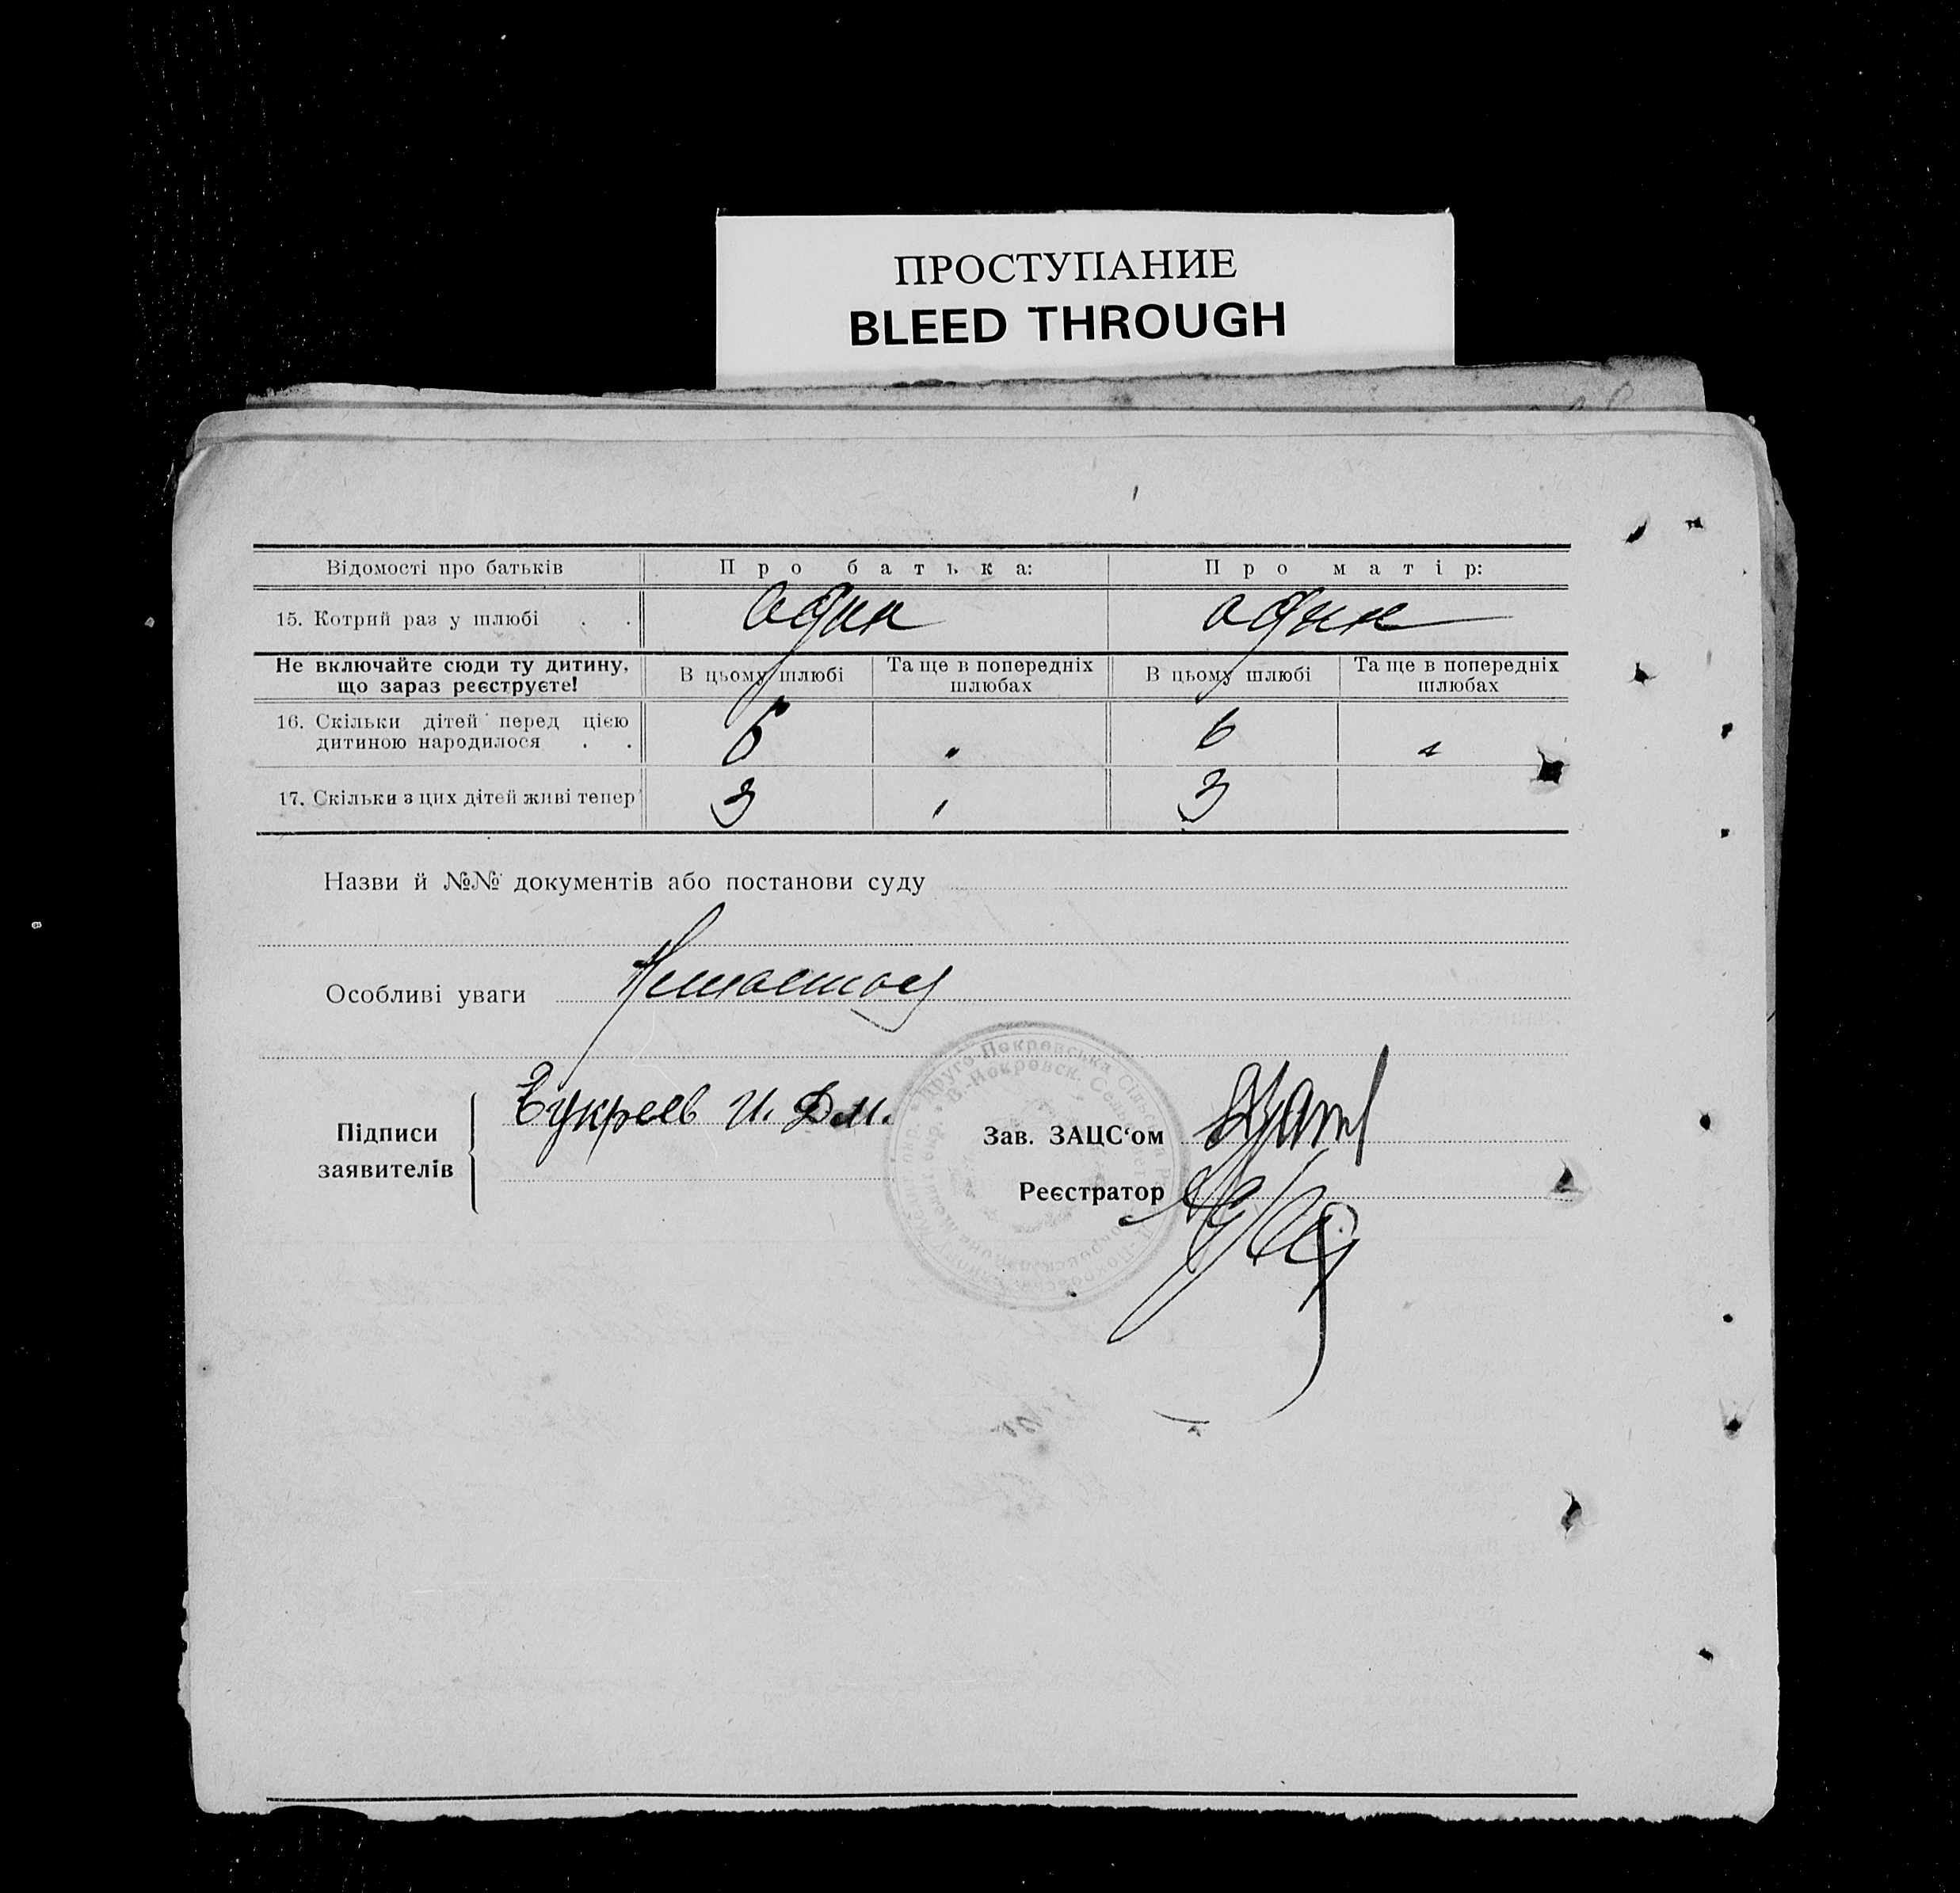 ПРОСТУПАНИЕ
BLEED THROUGH
Відомості про батьків Про батька: Про матір:
15. Котрий раз у шлюбі . . один один
Не включайте сюди ту дитину, що зараз реєструєте! В цьому шлюбі Та ще в попередніх шлюбах В цьому шлюбі Та ще в попередніх шлюбах
16. Скільки дітей перед цією
дитиною народилося . . 6 " 6 "
17. Скільки з цих дітей живі тепер 3 " 3
Назви й №№ документів або постанови суду
Особливі уваги
Букреев И. Дм.
Підписи
заявителів
Зав. ЗАЦС‘ом
Реєстратор
Друго-Покровська Сільська
В.-Покровск. Сельсовет